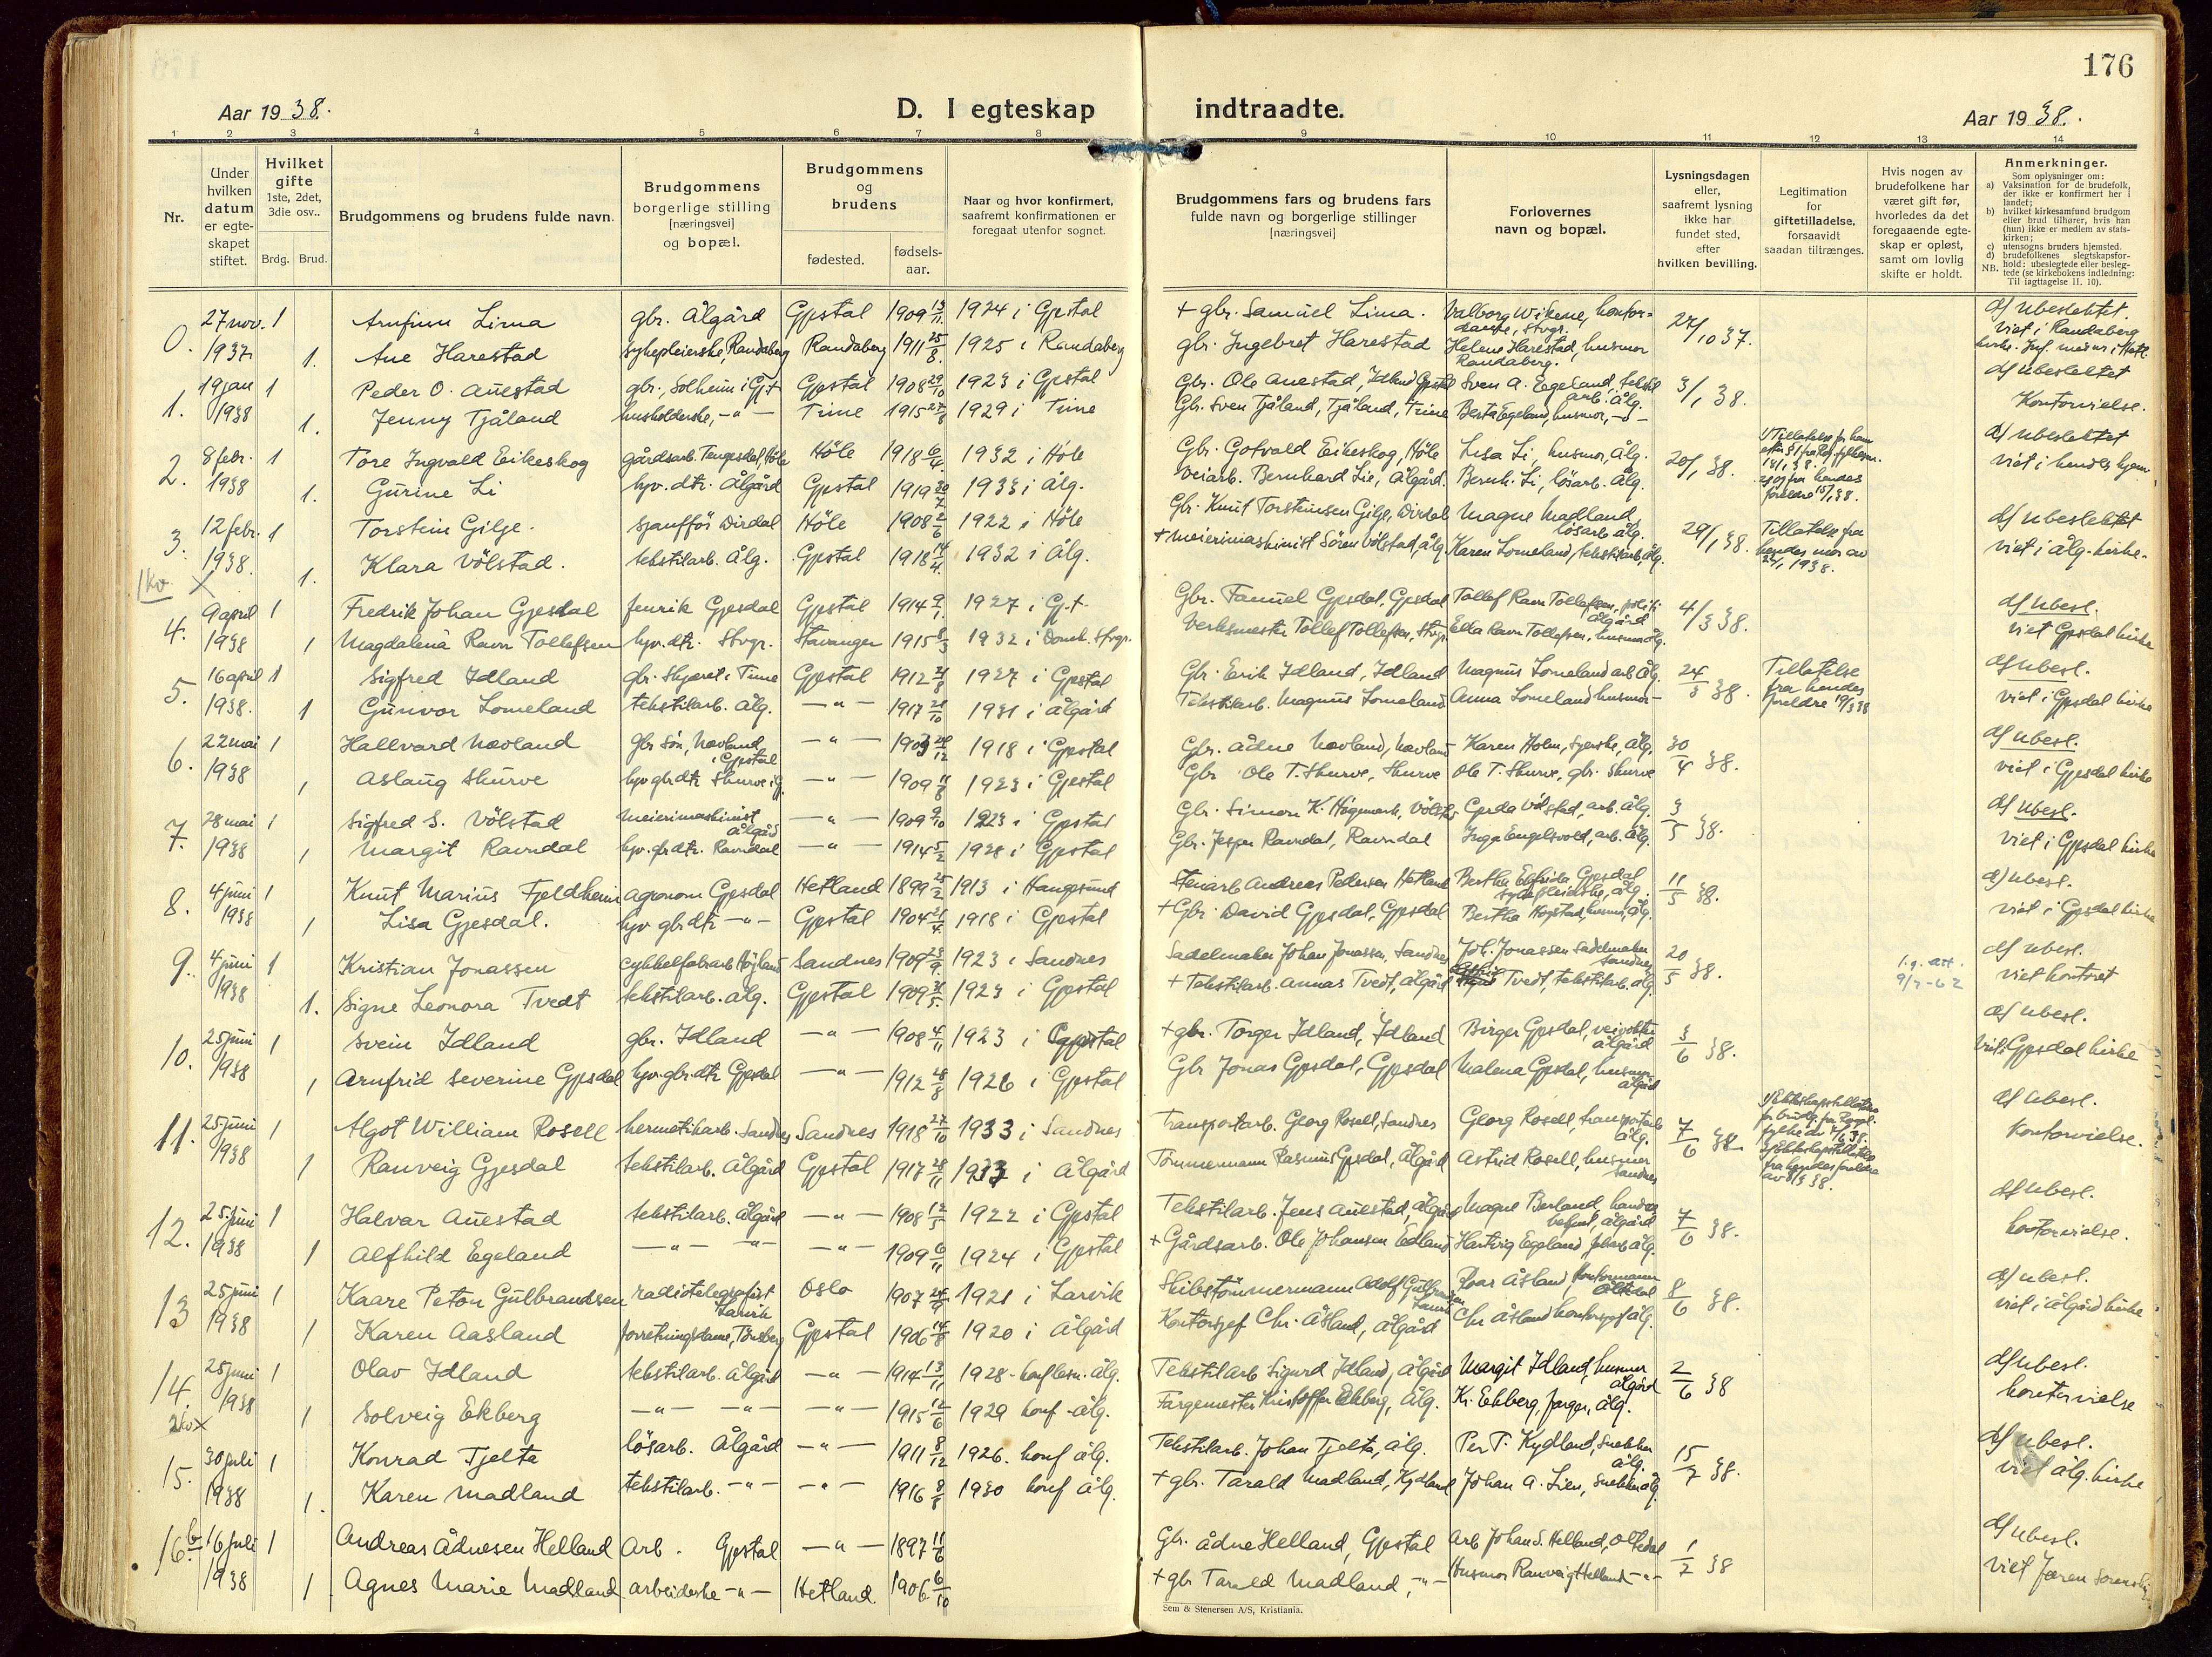 176
Aar 1938.
D. I egteskap indtraadte.
Aar 1938.
1 2 3 4 5 6 7 8 9 10 11 12 13 14
Nr.
Under hvilken datum er egte-skapet stiftet.
Hvilket gifte 1ste, 2det, 3die osv..
Brdg. Brud.
Brudgommens og brudens fulde navn.
Brudgommens borgerlige stilling [næringsvei] og bopæl.
Brudgommens og brudens
fødested. fødsels-aar.
Naar og hvor konfirmert, saafremt konfirmationen er foregaat utenfor sognet.
Brudgommens fars og brudens fars fulde navn og borgerlige stillinger [næringsvei]
Forlovernes navn og bopæl.
Lysningsdagen eller, saafremt lysning ikke har fundet sted, efter hvilken bevilling.
Legitimation for giftetilladelse, forsaavidt saadan tiltrænges.
Hvis nogen av brudefolkene har været gift før, hvorledes da det foregaaende egte-skap er opløst, samt om lovlig skifte er holdt.
Anmerkninger.
Som oplysninger om:
a) Vaksination for de brudefolk, der ikke er konfirmert her i landet;
b) hvilket kirkesamfund brudgom eller brud tilhører, hvis han (hun) ikke er medlem av stats-kirken;
c) utensogns bruders hjemsted.
d) brudefolkenes slegtskapsfor-hold: ubeslegtede eller besleg-tede (se kirkebokens indledning:
NB. Til iagttagelse II. 10).
0. 27 nov. 1 Arnfinn Lima gbr. Ålgård Gjestal 1909 13/11 1924 i Gjestal + gbr. Samuel Lima. Valborg Wikene, kontor-dame, Stvgr. 27/10 37. d/ ubeslektet.
1937 1. Ane Harestad sykepleierske, Randaberg Randaberg 1911 25/8 1925 i Randaberg gbr. Ingebret Harestad Helene Harestad, husmor Randaberg. Viet i Randaberg kirke.
1. 19 jan 1 Peder O. Auestad gbr., Solheim i Gj.t Gjestal 1908 29/10 1923 i Gjestal Gbr. Ole Auestad, Idland Gjestal Sven A. Egeland, tekstilarb. Ålg. 3/1 38. d/ ubeslektet
1938 1. Jenny Tjåland husholderske, -"- Time 1915 27/8 1929 i Time Gbr. Sven Tjåland, Tjåland, Time Berta Egeland, husmor, -"- Kontorvielse.
2. 8 febr. 1 Tore Ingvald Eikeskog gårdsarb. Tengesdal, Höle Höle 1918 6/4 1932 i Höle Gbr. Gotvald Eikeskog, Höle Lisa Li, husmor, Ålg. 20/1 38. d/ ubeslektet
1938 1. Gurine Li hjv. dtr. Ålgård Gjestal 1919 20/7 1933 i Ålg. Veiarb. Bernhard Lie, Ålgård. Bernh. Li, lösarb. Ålg. foreldre 15/1 38. viet i hendes hjem
3. 12 febr. 1 Torstein Gilje. sjafför Dirdal Höle 1908 2/6 1922 i Höle Gbr. Knut Torsteinsen Gilje, Dirdal Magne Madland, lösarb. Ålg. 29/1 38. Tillatelse fra hendes mor av 24/1 1938. d/ ubeslektet
1938. 1. Klara Völstad. tekstilarb. Ålg. Gjestal 1918 14/4 1932 i Ålg. + meierimaskinist Sören Völstad, Ålg. Karen Lomeland, tekstilarb., Ålg. viet i Ålg. kirke.
1 kv. X
4. 9 april 1 Fredrik Johan Gjesdal fenrik Gjesdal Gjestal 1914 9/1 1927 i Gj.t. Gbr. Samuel Gjesdal, Gjesdal Tollef Ravn Tollefsen, politi Ålgård 4/3 38. d/ ubesl.
1938 1 Magdalena Ravn Tollefsen hjv. dtr. Stvgr. Stavanger 1915 8/3 1932 i Domk. Stvgr. Verksmester Tollef Tollefsen, Stvgr. Ella Ravn Tollefsen, husmor Ålg. viet Gjesdal kirke
5. 16 april 1 Sigfred Idland gbr. Skjæret i Time Gjestal 1912 21/8 1927 i Gjestal Gbr. Erik Idland, Idland Magnus Lomeland arb. Ålg. 24/3 38. Tillatelse fra hendes foreldre 19/3 38 d/ ubesl.
1938. 1 Gunvor Lomeland tekstilarb. Ålg. -"- 1917 21/10 1931 i Ålgård Tekstilarb. Magnus Lomeland Anna Lomeland husmor - viet i Gjesdal kirke
6. 22 mai 1 Hallvard Nævland Gbr. sön, Nævland i Gjestal -"- 1903 24/12 1918 i Gjestal Gbr. Ådne Nævland, Nævland Karen Holm, syerske, Ålg. 30/4 38. d/ ubesl.
1938 1 Aslaug Skurve hjv. gb. dtr. Skurve i G. -"- 1909 11/8 1923 i Gjestal Gbr Ole T. Skurve, Skurve Ole T. Skurve, gbr. Skurve viet i Gjesdal kirke
7. 28 mai 1 Sigfred S. Völstad meierimaskinist Ålgård -"- 1909 9/10 1923 i Gjestal Gbr. Simon K. Högemark, Völstad Gerda Völstad, arb. Ålg. 3/5 38. d/ ubesl.
1938 1 Margit Ravndal hjv. gb. dtr. Ravndal -"- 1914 5/2 1928 i Gjestal Gbr. Jesper Ravndal, Ravndal Inga Engelsvold, arb. Ålg. viet i Gjesdal kirke
8. 4 juni 1 Knut Marius Fjeldheim agronom Gjesdal Hetland 1899 25/2 1913 i Haugesund Stenarb Andreas Pedersen Hetland Bertha Elfrida Gjesdal sykepleierske, Ålg. 11/5 38. d/ ubesl.
1938 1 Lisa Gjesdal. hjv gb. dtr -"- Gjestal 1904 21/4 1918 i Gjestal + Gbr. David Gjesdal, Gjesdal Bertha Kogstad, husmor, Ålg. viet i Gjesdal kirke
9. 4 juni 1 Kristian Jonassen cykkelfabrarb Höjland Sandnes 1909 23/9 1923 i Sandnes Sadelmaker Johan Jonassen, Sandnes Joh. Jonassen Sadelmaker Sandnes 20/5 38. d/ ubesl.
1938 1. Signe Leonora Tvedt tekstilarb. Ålg. Gjestal 1909 31/5 1923 i Gjestal + Tekstilarb. Annas Tvedt, Ålgård Tvedt, tekstilarb. Ålg. 9/7-62 viet kontoret
10. 25 juni 1 Svein Idland gbr. Idland -"- 1908 4/11 1923 i Gjestal + gbr. Torger Idland, Idland Birger Gjesdal, veivokter Ålgård 3/6 38. d/ ubesl.
1938 1 Arnfrid Severine Gjesdal hjv. gbr. dtr Gjesdal -"- 1912 28/8 1926 i Gjestal Gbr Jonas Gjesdal, Gjesdal Malena Gjesdal, husmor Ålgård Viet i Gjesdal kirke
11. 25 juni 1 Algot William Rosell hermetikarb. Sandnes Sandnes 1918 27/10 1933 i Sandnes Transportarb. Georg Rosell, Sandnes Georg Rosell, transportarb Ålg. 7/6 38 d/ ubesl.
1938 1 Ranveig Gjesdal tekstilarb. Ålgård Gjestal 1917 28/11 1933 i Ålgård Tömmermann Rasmus Gjesdal, Ålgård Astrid Rosell, husmor Sandnes Kontorvielse.
12. 25. juni 1 Halvar Auestad tekstilarb. Ålgård -"- 1908 12/5 1922 i Gjestal Tekstilarb. Jens Auestad, Ålgård Magne Berland, handels betjent, Ålgård 7/6 38. d/ ubesl.
1938 1 Alfhild Egeland -"- -"- -"- 1909 6/11 1924 i Gjestal + Gårdsarb. Ole Johansen Edland Hartvig Egeland, Ålg. kontorvielse.
13 25 juni 1 Kaare Peton Gulbrandsen radiotelegrafist Larvik Oslo 1907 24/9 1921 i Larvik Skibstömmermann Adolf Gulbrandsen Larvik Roar Åsland kontormann 8/6 38. d/ ubesl.
1938 1 Karen Aasland forretningsdame, Tönsberg Gjestal 1906 14/8 1920 i Ålgård Kontorsjef Chr. Åsland, Ålgård Chr Åsland kontorsjef Ålg. viet i Ålgård kirke
14. 25 juni 1 Olav Idland tekstilarb. Ålgård -"- 1914 13/11 1928 - konf. Ålg. Tekstilarb Sigurd Idland, Ålgård Margit Idland, husmor Ålgård 2/6 38 d/ ubesl.
1938 1 Solveig Ekberg -"- -"- -"- 1915 12/6 1929 konf - Ålg. Fargemester Kristoffer Ekberg, Ålg. Kr. Ekberg, farger, Ålg. kontorvielse
2 kv X
15. 30 juli 1 Konrad Tjelta lösarb. Ålgård -"- 1911 8/12 1926. konf Ålg. Tekstilarb. Johan Tjelta, Ålg. Per T. Kydland, Snekker Ålg. 15/7 38. d/ ubesl.
1938 1. Karen Madland tekstilarb. -"- -"- 1916 8/8 1930 konf Ålg. + gbr. Tarald Madland, Kydland Johan A. Lien, Snekker Ålg. viet Ålg. kirke
16. b 16 juli 1 Andreas Ådnesen Helland Arb. Gjestal -"- 1897 11/6 Gbr. Ådne Helland, Gjestal Arb Johan S. Helland, Oltedal 1/7 38 d/ ubesl.
1938 1 Agnes Marie Madland arbeiderske -"- Hetland 1906 6/10 + gbr Tarald Madland, -"- Husmor Ranveig Helland -"- viet Jæren
Sem & Stenersen A/S, Kristiania.